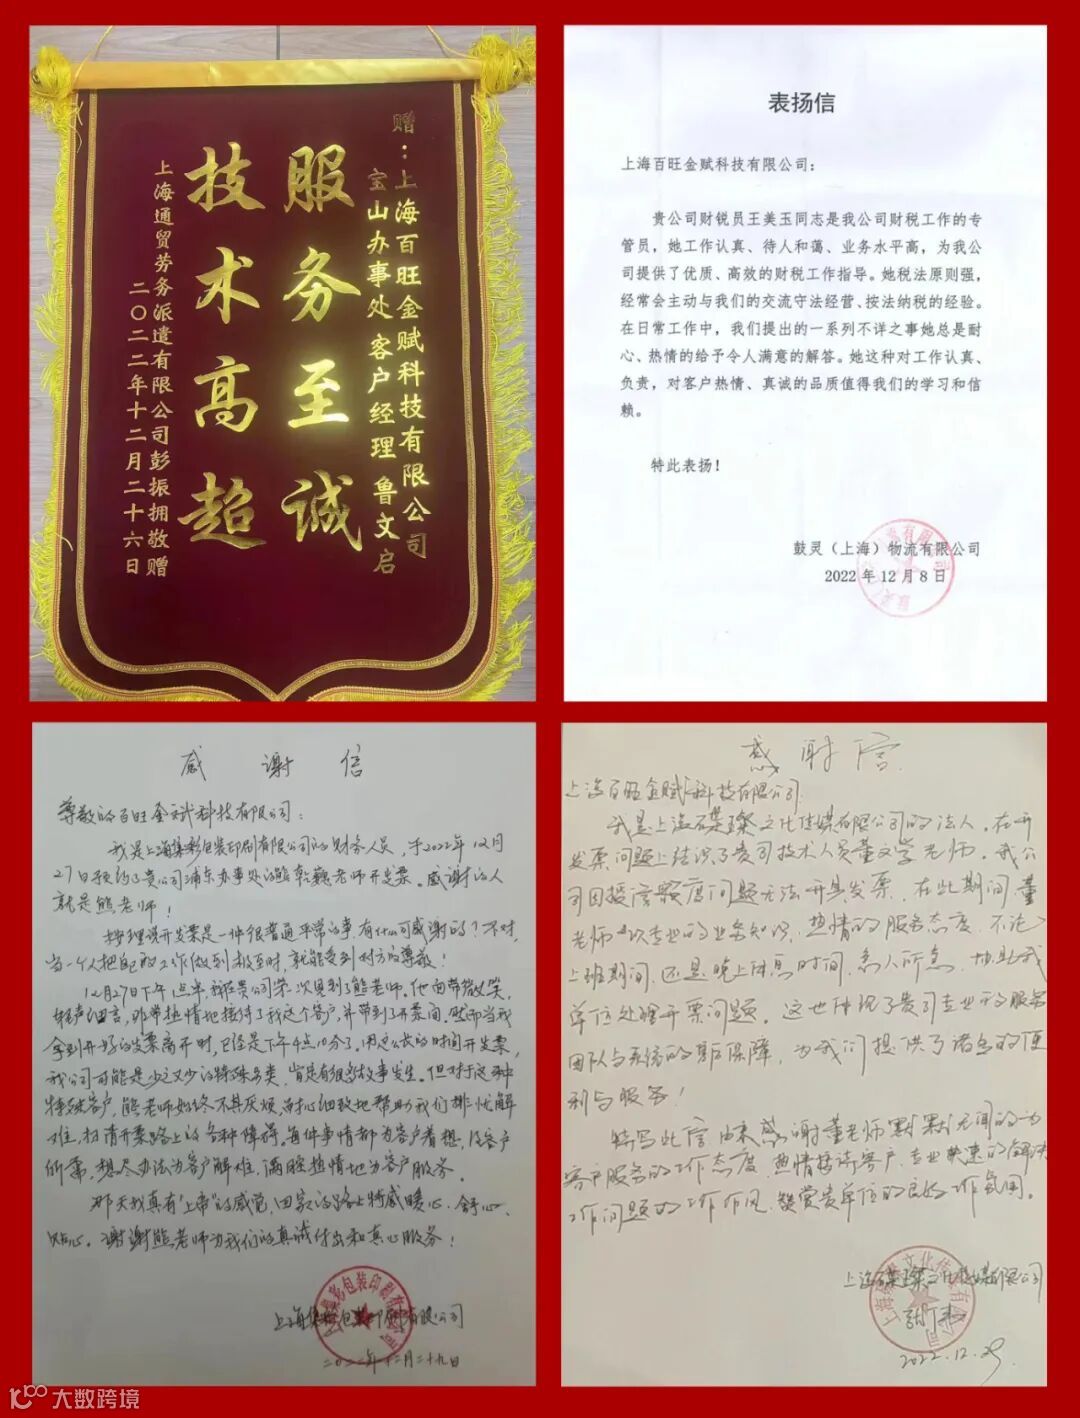 赠：上海百旺金赋科技有限公司
宝山办事处 客户经理 鲁文启
服务至诚
技术高超
上海通贸劳务派遣有限公司彭振拥敬赠
二〇二二年十二月二十六日
表扬信
上海百旺金赋科技有限公司：
贵公司财锐员王美玉同志是我公司财税工作的专
管员，她工作认真、待人和蔼、业务水平高，为我公
司提供了优质、高效的财税工作指导。她税法原则强，
经常会主动与我们的交流守法经营、按法纳税的经验。
在日常工作中，我们提出的一系列不详之事她总是耐
心、热情的给予令人满意的解答。她这种对工作认真、
负责，对客户热情、真诚的品质值得我们的学习和信
赖。
特此表扬！
鼓灵（上海）物流有限公司
2022年12月8日
感谢信
尊敬的百旺金赋科技有限公司：
我是上海集彩包装印刷有限公司的财务人员，于2022年12月
27日预约了贵公司浦东办事处的熊乾巍老师开发票。感谢的人
就是熊老师！
按理说开发票是一件很普通平常的事，有什么可感谢的？不对，
当一个人把自己的工作做到极至时，就能受到对方的尊敬！
12月27日下午1点半，我在贵公司第一次见到了熊老师。他面带微笑，
轻声细言，非常热情地接待了我这个客户，并带到了开票间。然而当我
拿到开好的发票离开时，已经是下午4点10分了。用这么长的时间开发票，
我公司可能是少之又少的特殊另类，肯定有很多故事发生。但对于这种
特殊客户，熊老师始终不其厌烦，耐心细致地帮助我们排忧解
难，扫清开票路上的各种障碍。每件事情都为客户着想，没客户
所需，想尽办法为客户解难，满腔热情地为客户服务。
那天我真有"上帝"的感觉，回家的路上特感暖心、舒心、
贴心。谢谢熊老师为我们的真诚付出和真心服务！
上海集彩包装印刷有限公司
二〇二二年十二月二十九日
感谢信
上海百旺金赋科技有限公司
我是上海磲璨文化传媒有限公司的法人。在开
发票问题上结识了贵司技术人员董文学老师。我公
司因授信额度问题无法开具发票，在此期间董
老师以专业的业务知识，热情的服务态度，不论
上班期间，还是晚上休息时间，急人所急，协助我
单位处理开票问题。这也体现了贵司专业的服务
团队与系统的强保障，为我们提供了诸多的便
利与服务！
特写此信由来感谢董老师默默无闻的为
客户服务的工作态度，热情接待客户、专业快速的解决
工作问题的工作作风，赞赏贵单位的良好工作氛围。
上海磲璨文化传媒有限公司
2022.12.29
大数跨境